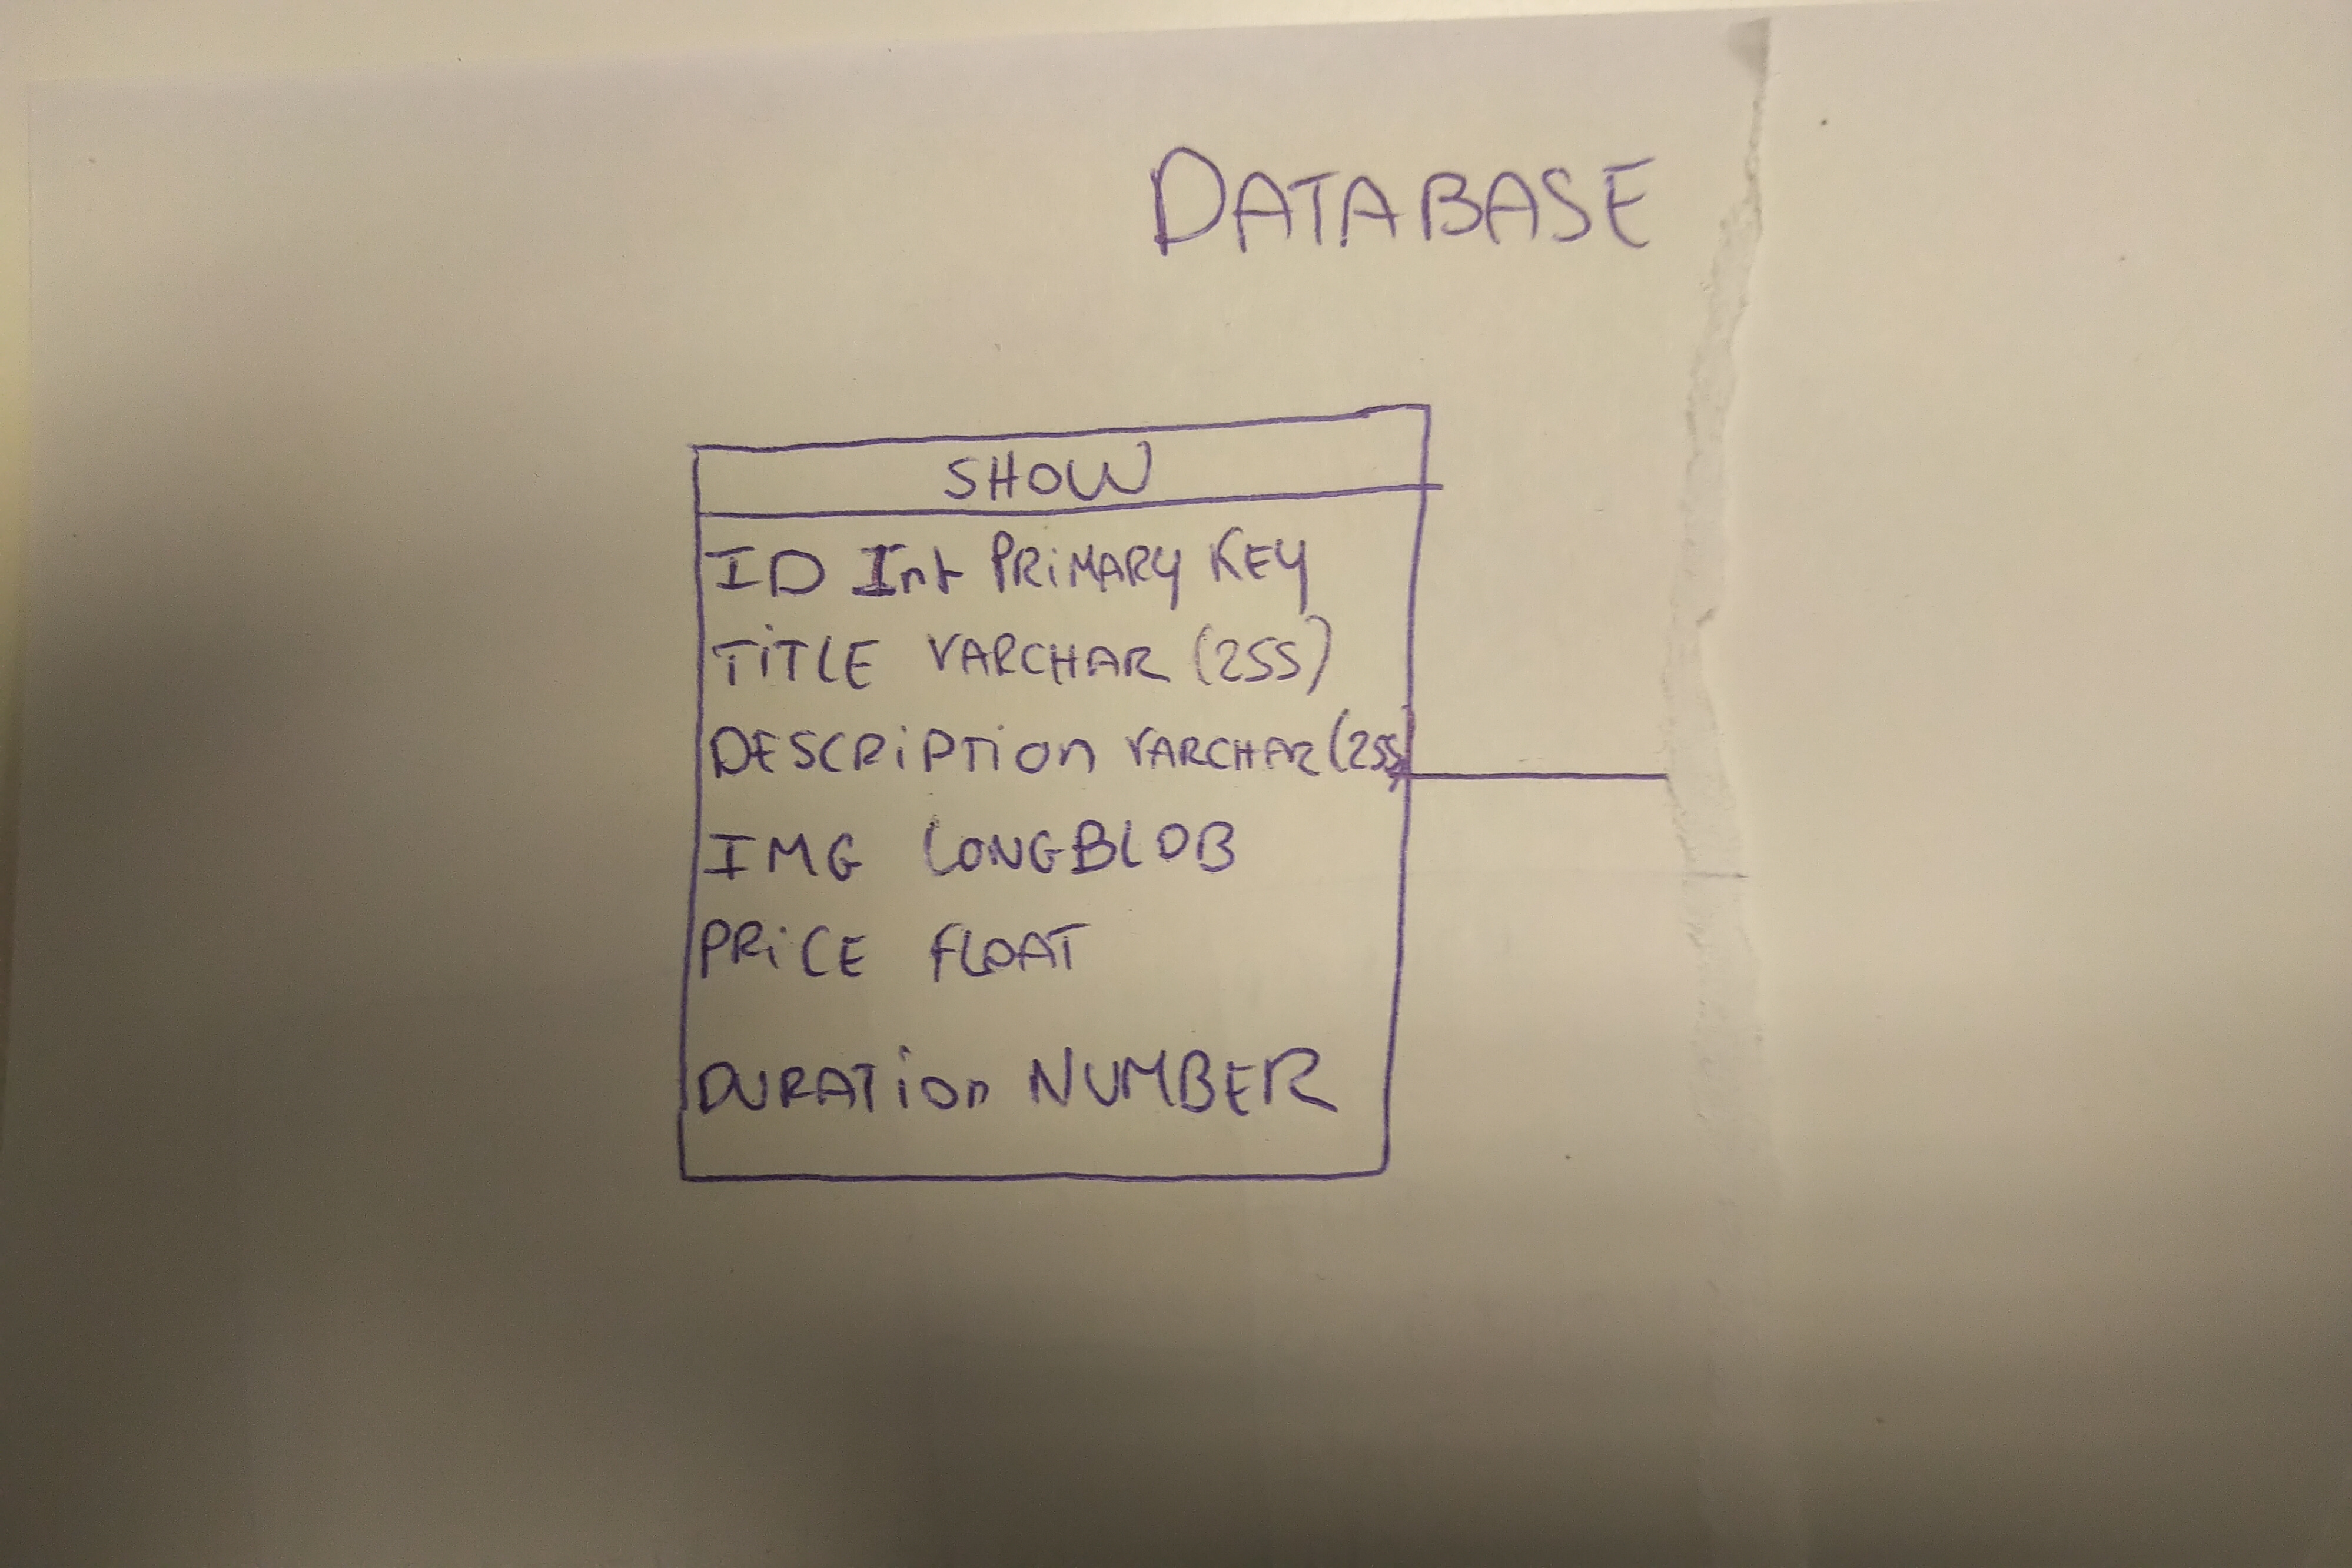 DATABASE
SHOW
ID Int PRiMARY KEY
TiTLE VARCHAR (255)
DESCRiPTion VARCHAR (255)
IMG LONGBLOB
PRiCE FLOAT
DURATion NUMBER